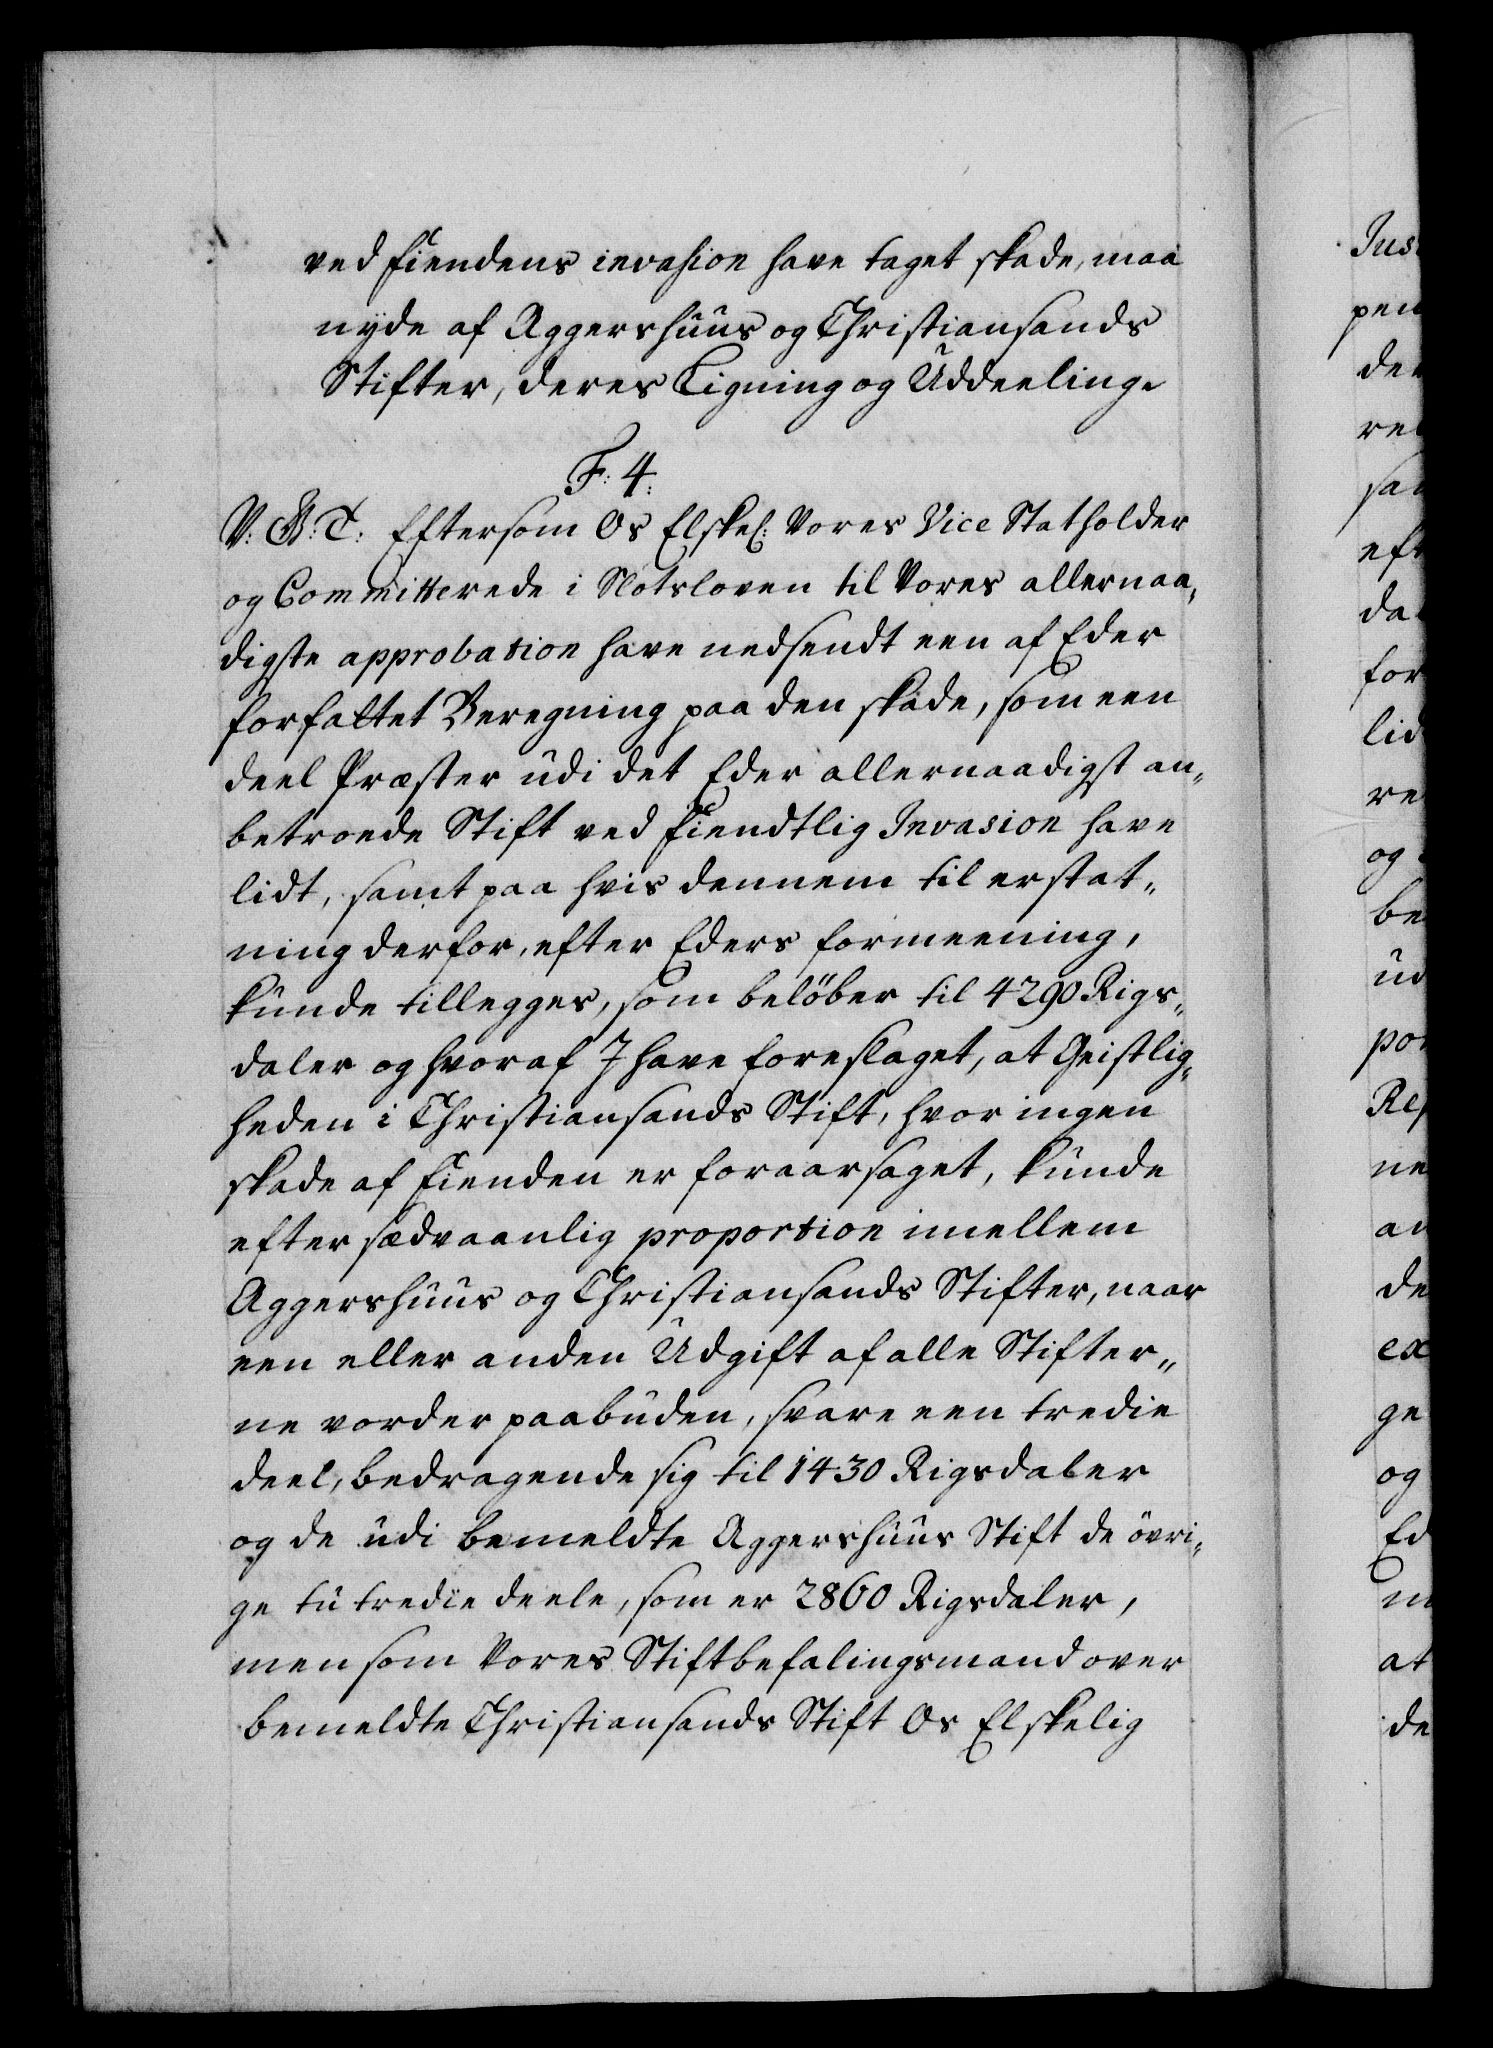 ved Fiendens invasion have taget skade, maa
nyde af Aggershuus og Christiansands
Stifter, deres Ligning og Uddeeling.
F: 4:
V: G: T: Eftersom Os Elskel: Vores Vice Statholder
og Committerede i Slotsloven til Vores allernaa„
digste approbation have nedsendt een af Eder
forfattet Beregning paa den skade, som een
deel Præster udi det Eder allernaadigst an„
betroede Stift ved Fiendtlig Invasion have
lidt, samt paa hvis dennem til erstat„
ning derfor, efter Eders formeening,
kunde tillegges, som beløber til 4290 Rigs„
daler og hvoraf I have foreslaget, at Geistlig„
heden i Christiansands Stift, hvor ingen
skade af Fienden er foraarsaget, kunde
efter sædvaanlig proportion imellem
Aggershuus og Christiansands Stifter, naar
een eller anden Udgift af alle Stifter„
ne vorder paabuden, svare een tredie
deel, bedragende sig til 1430 Rigsdaler
og de udi bemeldte Aggershuus Stift de øvri„
ge tu tredie deele, som er 2860 Rigsdaler,
men som Vores Stiftbefalingsmand over
bemeldte Christiansands Stift Os Elskelig